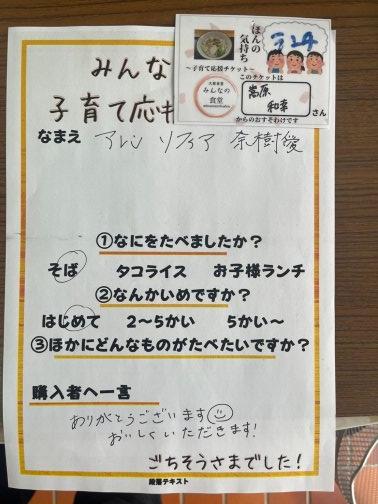 みんな
子育て応
ほんの
気持ち
～子育て応援チケット～
みんなの
食堂
このチケットは
嵩原
和幸
さん
からのおすそわけです
なまえ アレン ソフィア 奈樹俊
①なにをたべましたか？
そば タコライス お子様ランチ
②なんかいめですか？
はじめて 2～5かい 5かい～
③ほかにどんなものがたべたいですか？
購入者へ一言
ありがとうございます
おいしくいただきます!
ごちそうさまでした！
段落テキスト